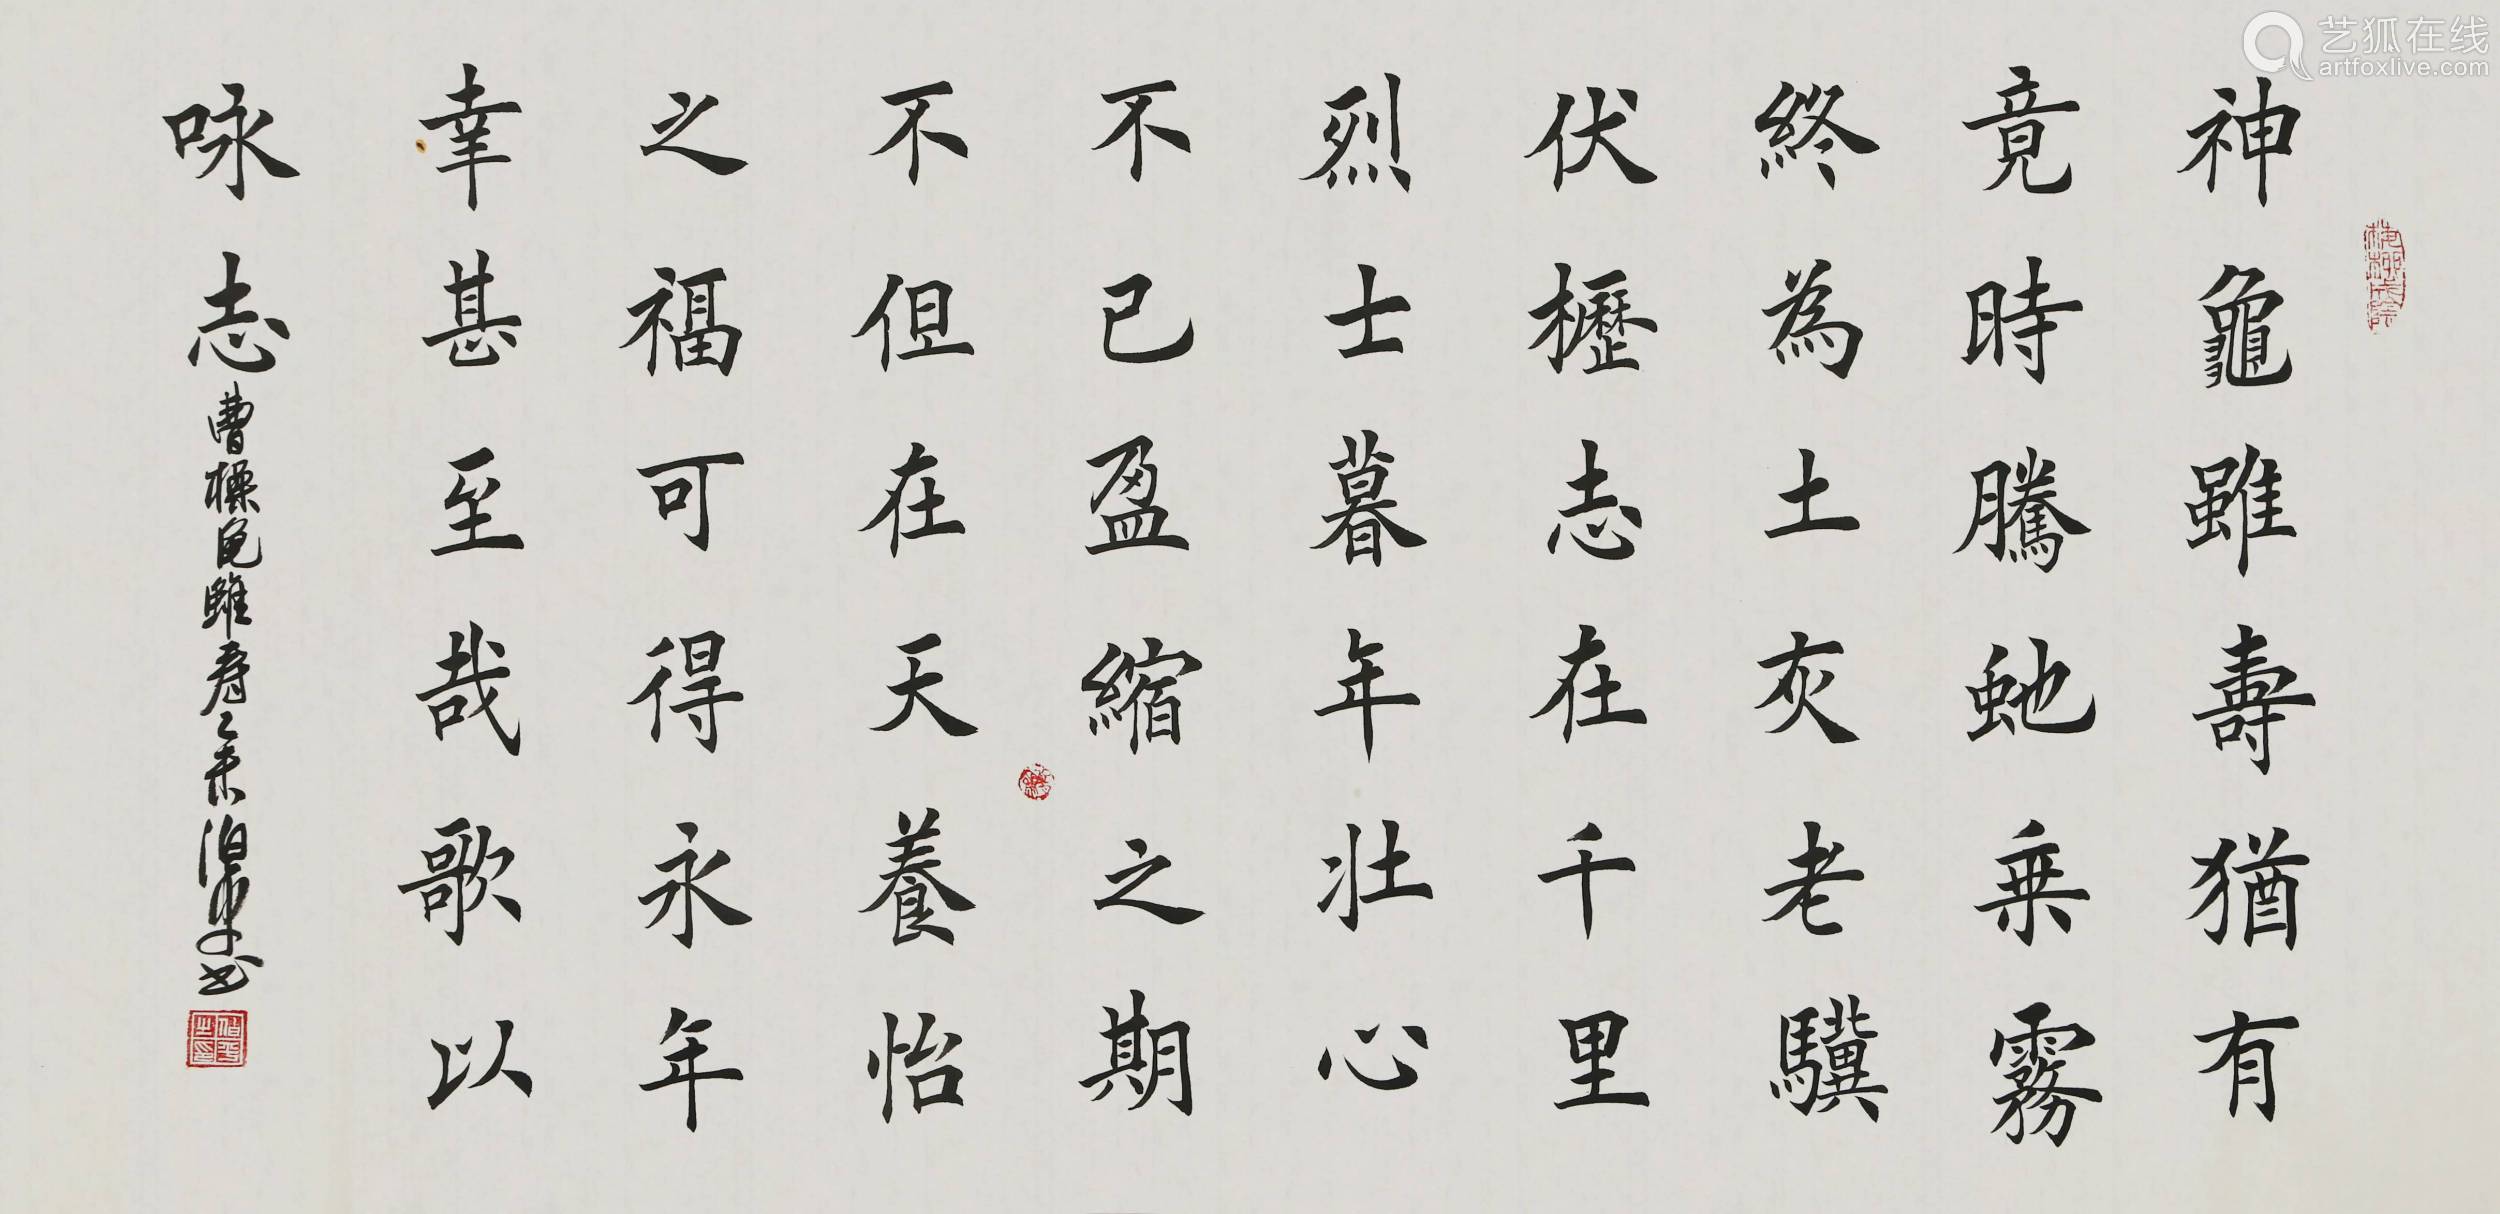 神龜雖壽猶有
竟時騰虵乗霧
終為土灰老驥
伏櫪志在千里
烈士暮年壯心
不已盈縮之期
不但在天養怡
之福可得永年
幸甚至哉歌以
咏志
曹操龜雖壽乙未書
艺狐在线
artfoxlive.com